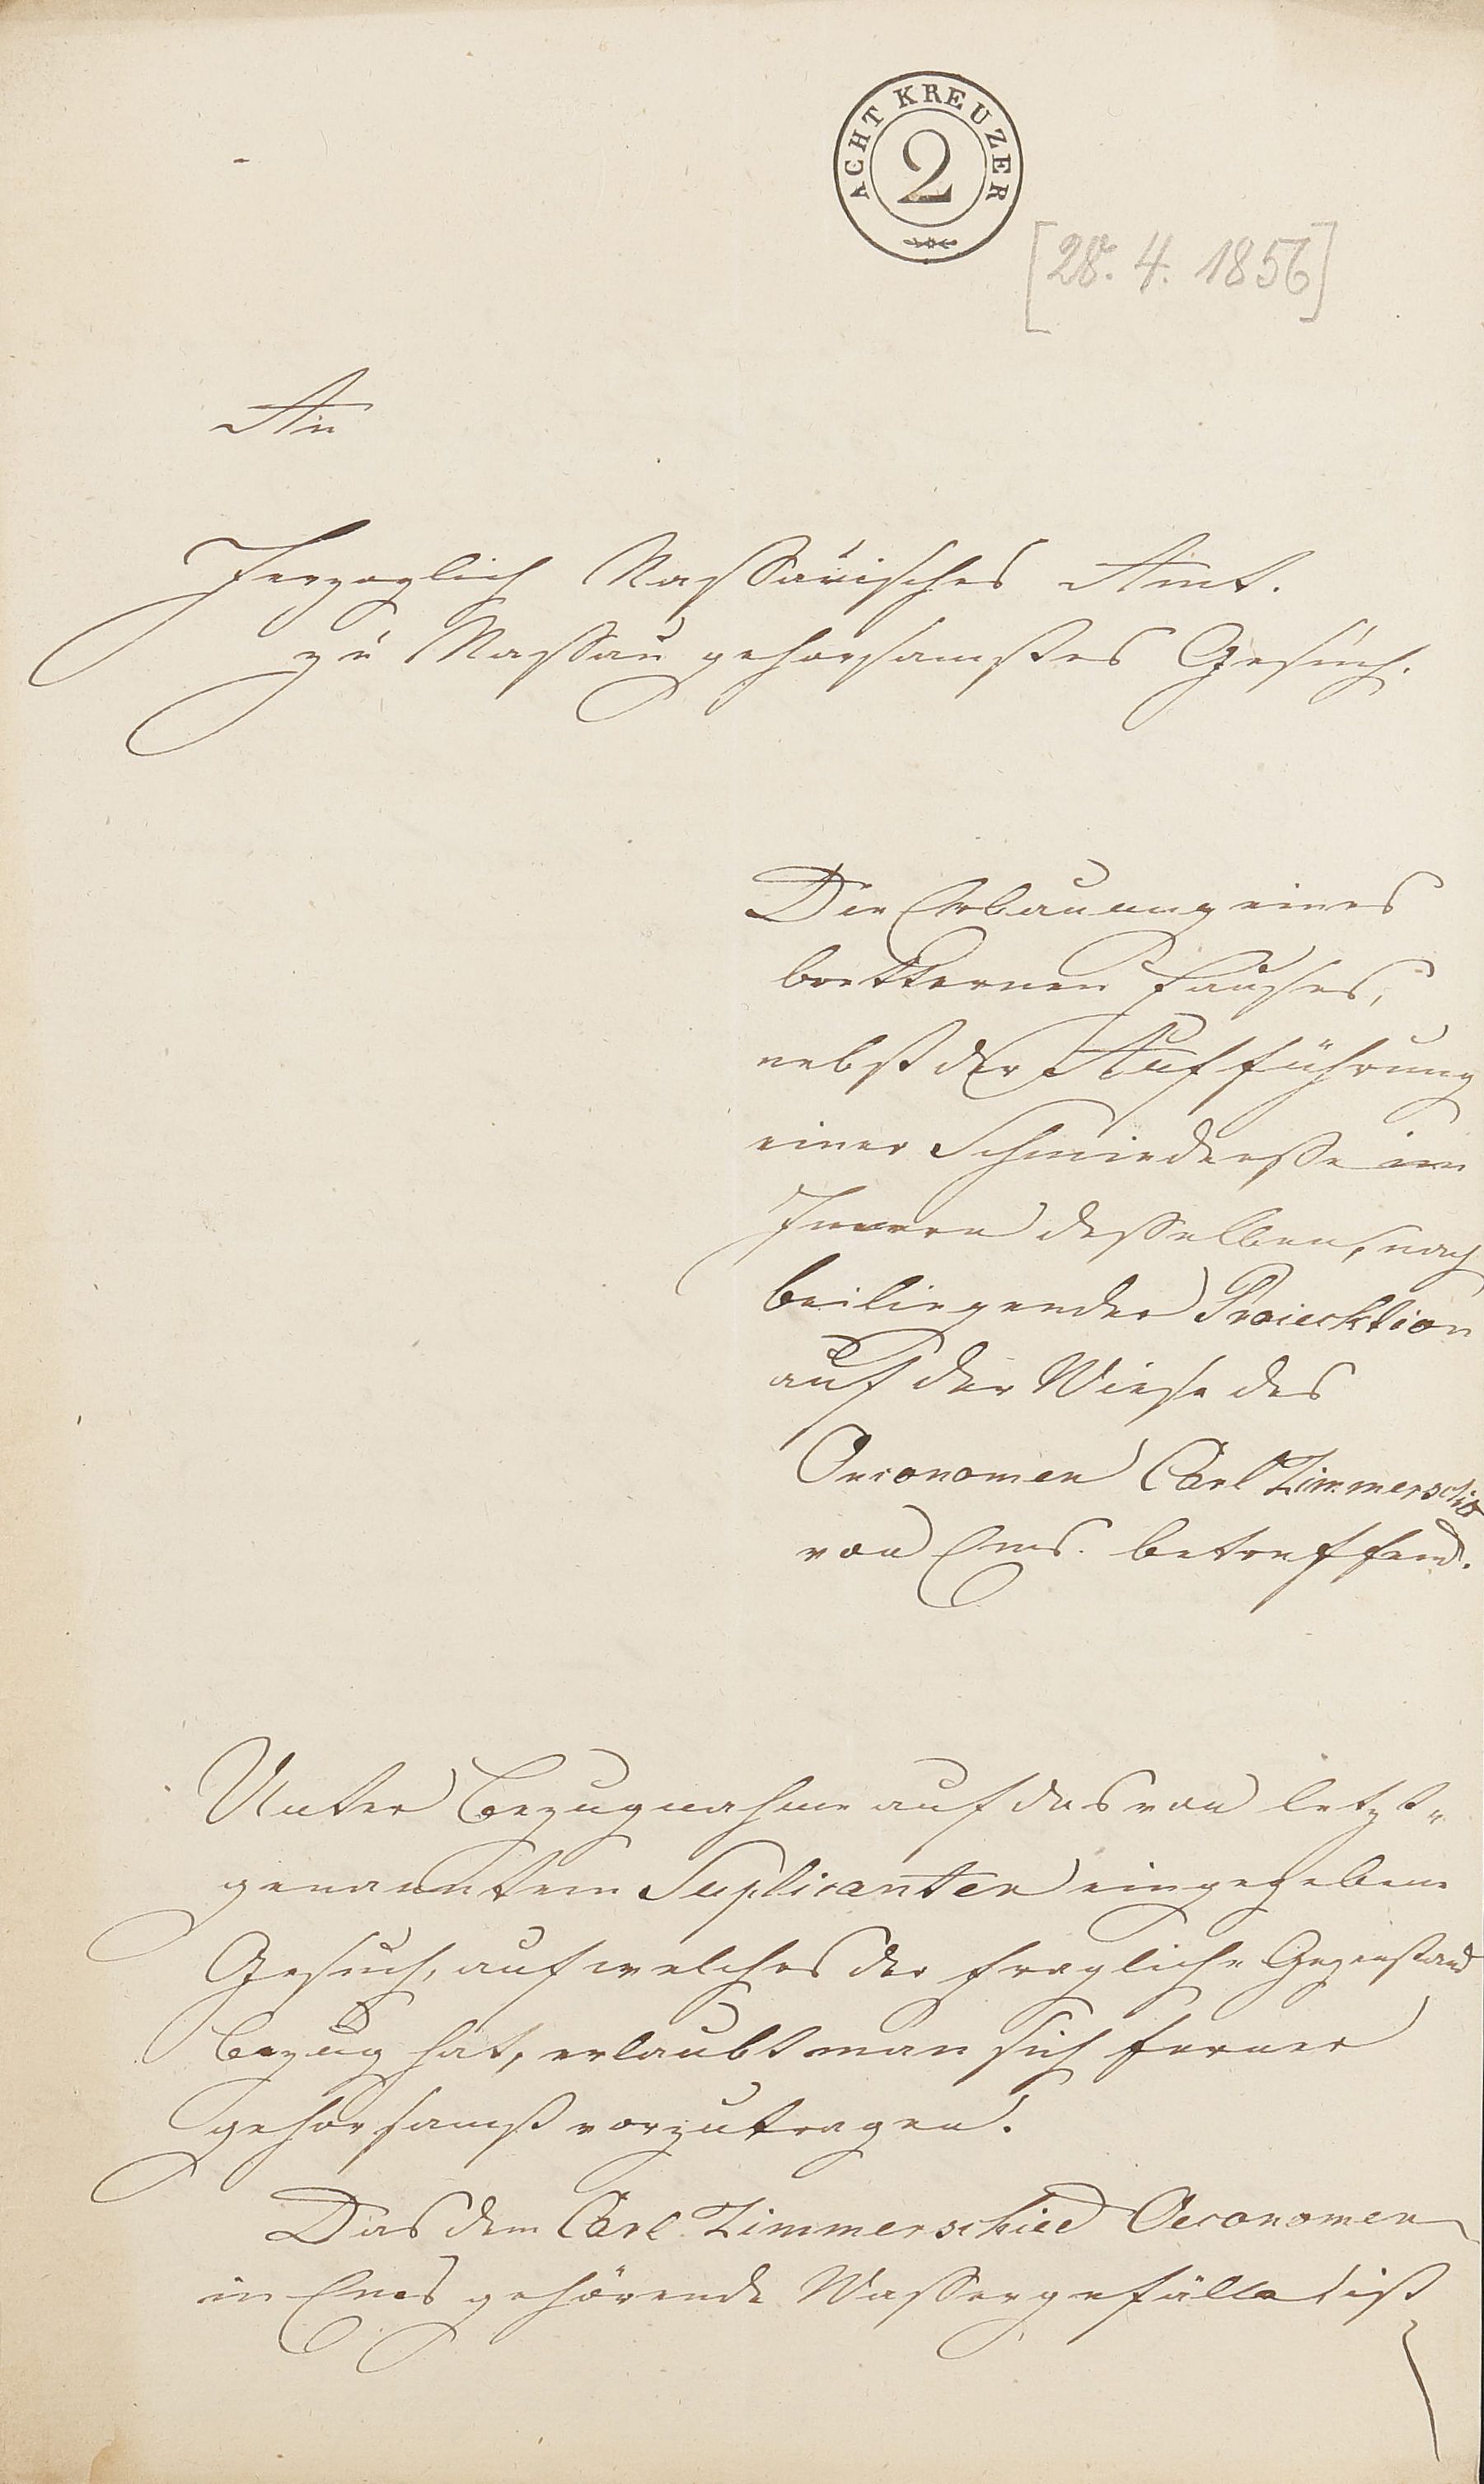 ACHT KREUZER
2
[28. 4. 1856]
An
Herzoglich Nassauisches Amt.
zu Nassau gehorsamstes Gesuch.
Die Erbauung eines
bretternen Hauses,
nebst der Aufführung
einer Schmiedeesse im
Innern desselben, nach
beiliegender Projecktion
auf der Wiese des
Oeconomen Carl Zimmerschied
von Ems. betreffend.
Unter Bezugnahme auf das von letzt-
genanntem Suplicanten eingegebene
Gesuch, auf welches der fragliche Gegenstand
Bezug hat, erlaubt man sich ferner
gehorsamst vorzutragen.
Das dem Carl Zimmerschied Oeconomen
in Ems gehörende Wassergefälle ist